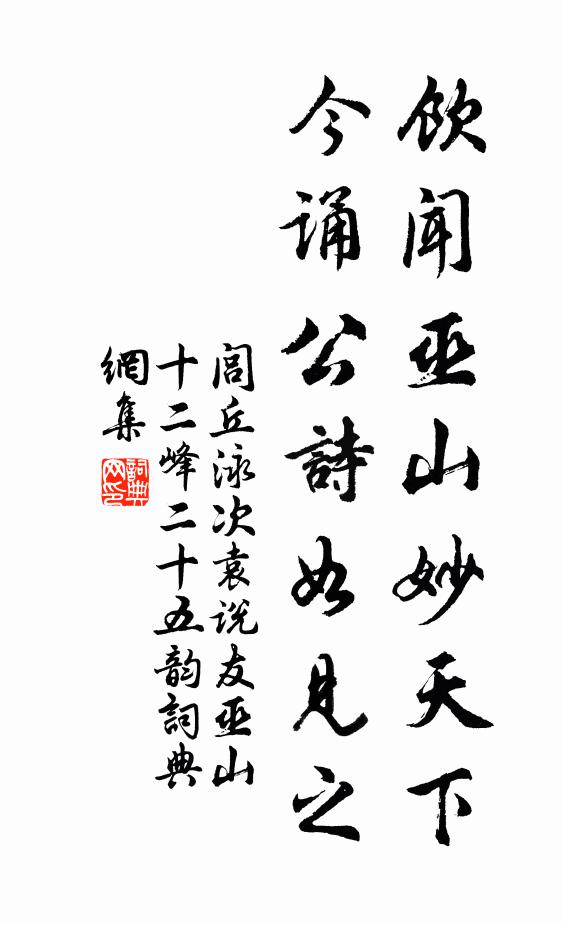 飲聞巫山妙天下
今誦公詩如見之
閭丘泳次袁說友巫山
十二峰二十五韵詞典
網集
詞典網印